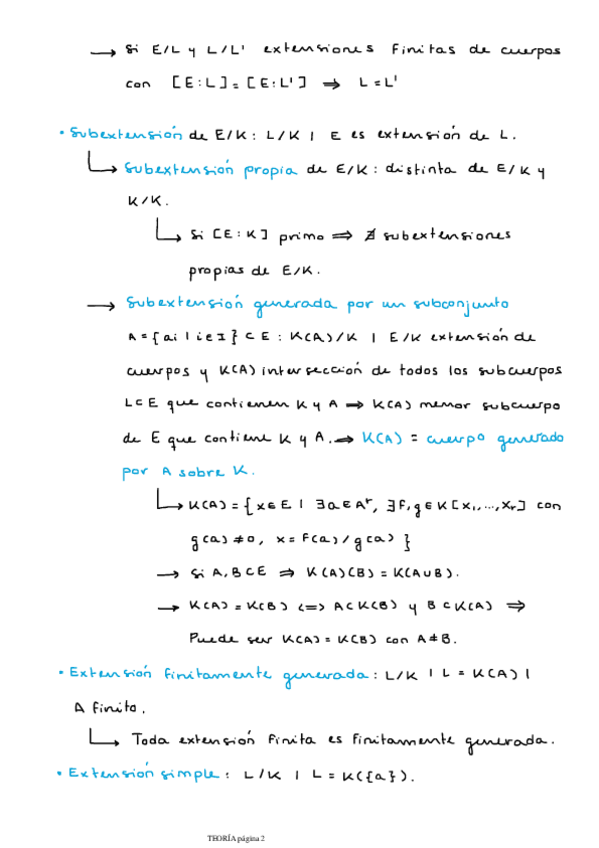 → Si E/L y L/L' extensiones finitas de cuerpos
con [E:L] = [E:L'] ⇒ L = L'
• Subextensión de E/K: L/K | E es extensión de L.
↳ Subextensión propia de E/K: distinta de E/K y
K/K.
↳ Si [E:K] primo ⇒ ∄ subextensiones
propias de E/K.
→ Subextensión generada por un subconjunto
A = {ai | i∈I} ⊂ E: K(A)/K | E/K extensión de
cuerpos y K(A) intersección de todos los subcuerpos
L⊂E que contienen K y A ⇒ K(A) menor subcuerpo
de E que contiene K y A. ⇒ K(A) = cuerpo generado
por A sobre K.
↳ K(A) = {x∈E | ∃a∈Aʳ, ∃f,g∈K[x₁,...,xᵣ] con
g(a)≠0, x = f(a)/g(a)}
→ Si A,B⊂E ⇒ K(A)(B) = K(A∪B).
→ K(A) = K(B) <=> A⊂K(B) y B⊂K(A) ⇒
Puede ser K(A) = K(B) con A≠B.
• Extensión finitamente generada: L/K | L = K(A) |
A finito.
↳ Toda extensión finita es finitamente generada.
• Extensión simple: L/K | L = K({a}).
TEORÍA página 2